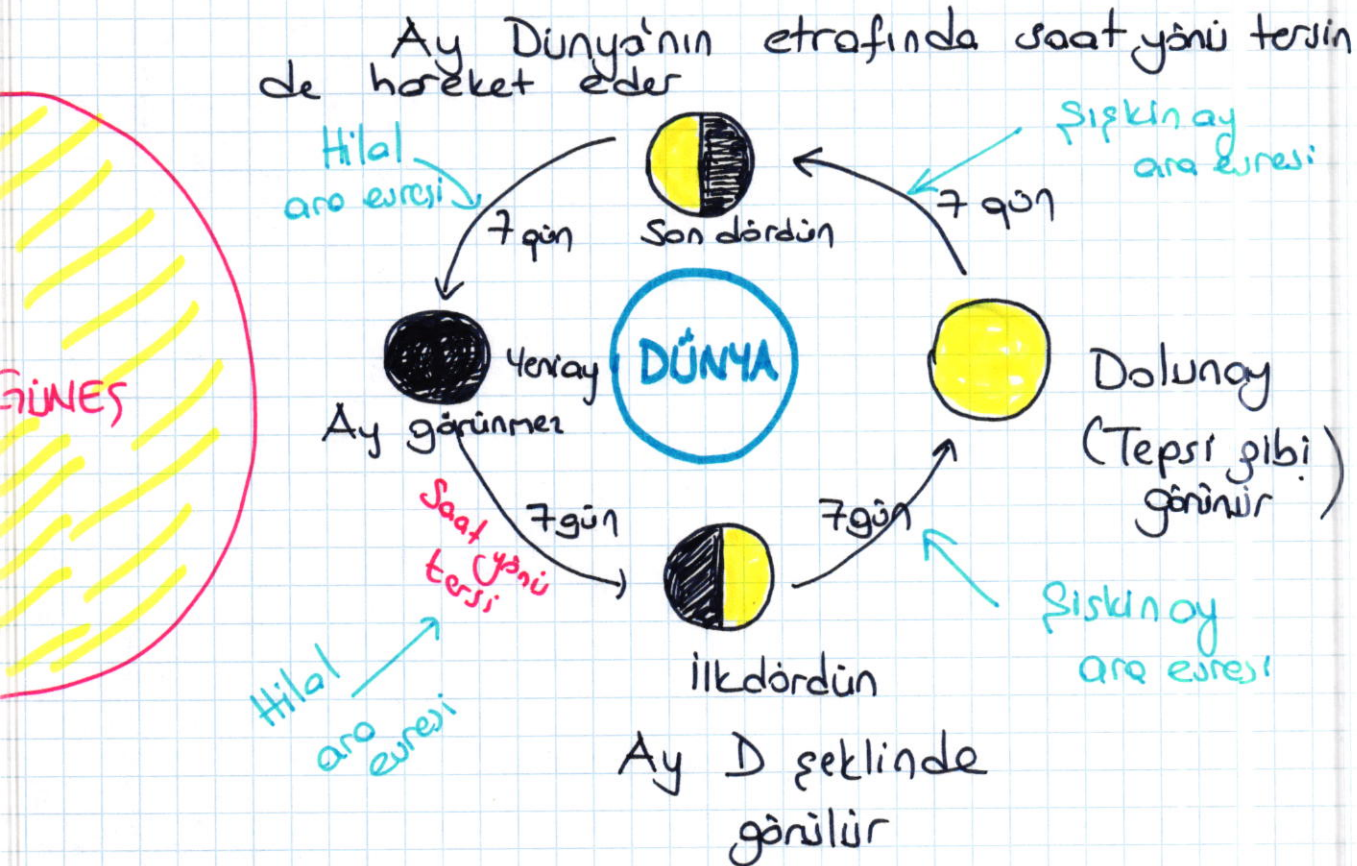 Ay Dünya'nın etrafında saat yönü tersin
de hareket eder
Hilal
ara evresi
Şişkin ay
ara evresi
7 gün
Son dördün
7 gün
GÜNEŞ
Yeniay
DÜNYA
Dolunay
(Tepsi gibi
görünür)
Ay görünmez
Saat yönü
tersi
7 gün
7 gün
Hilal
ara
evresi
İlkdördün
Şişkin ay
ara evresi
Ay D şeklinde
görülür